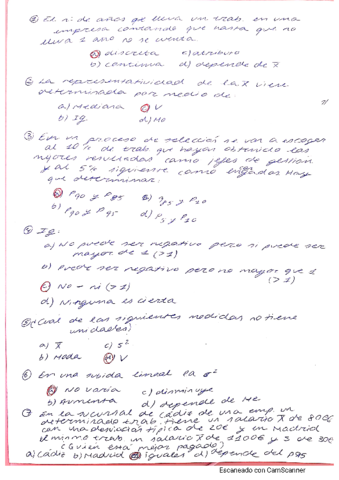 ① El nº de años que lleva un trab. en una
empresa contando que hasta que no
lleva 1 año no se cuenta
a) discreta c) atributo
b) continua d) depende de x̄
② La representatividad de la x̄ viene
determinada por medio de
a) Mediana c) V
b) Ig d) Mo
③ En un proceso de selección se van a escoger
al 10% de trab que hayan obtenido los
mayores resultados como jefes de gestión
y al 5% siguiente como
que determinar:
a) P90 y P85 c) P5 y P10
b) P90 y P95 d) P5 y P10
④ Ig:
a) No puede ser negativo pero si puede ser
mayor de 1 (>1)
b) Puede ser negativo pero no mayor que 1
(>1)
c) No - ni (>1)
d) Ninguna es cierta
⑤ ¿Cual de las siguientes medidas no tiene
unidades?
a) x̄ c) S²
b) Moda d) V
⑥ En una subida lineal la σ²
a) No varía c) disminuye
b) Aumenta d) depende de Me
⑦ En la sucursal de Cádiz de una emp. un
determinado trab. tiene un salario x̄ de 800€
con una desviación típica de 20€ y en Madrid
el mismo trab un salario x̄ de 1100€ y S de 80€
¿Quien está mejor pagado?
a) Cádiz b) Madrid c) iguales d) depende del P95
Escaneado con CamScanner